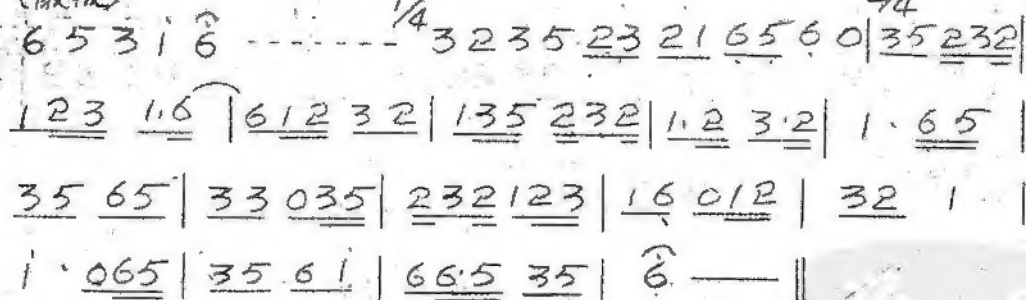 6 5 3 1 6 - - - - - - - - 1/4 3 2 3 5 23 21 65 6 0 | 35 232 |
123 1.6 | 612 32 | 135 232 | 1.2 3.2 | 1 . 65 |
35 65 | 33 035 | 232 123 | 16 012 | 32 1 |
1 . 065 | 35 61 | 66.5 35 | 6 — ||